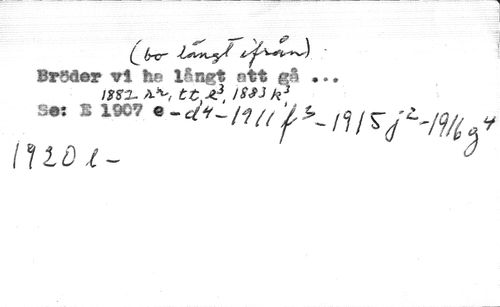 (bo långt ifrån)
Bröder vi ha långt att gå ...
1882 rr, tt, l³, 1883 k³,
Se: E 1907 e - d⁴ - 1911 f³ - 1915 j² - 1916 g⁴
1920 l -